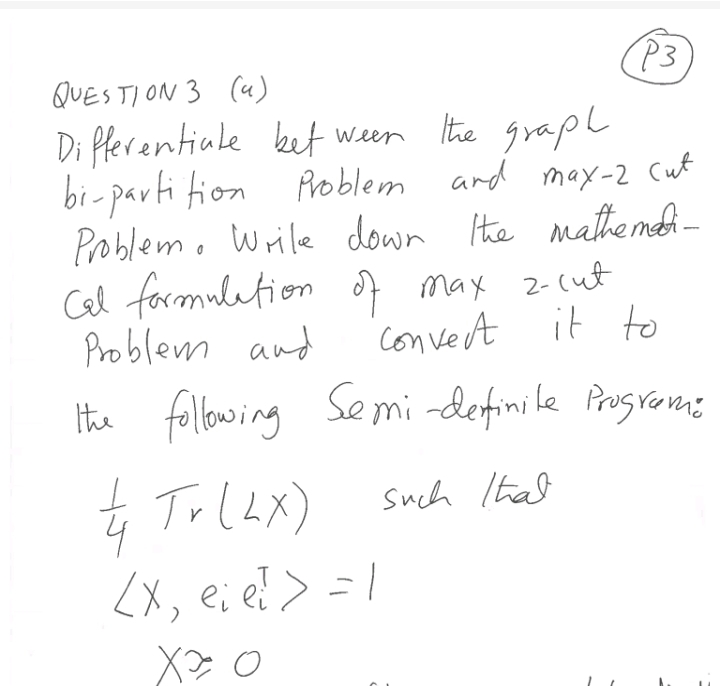 P3
QUESTION 3 (a)
Differentiate between the graph
bi-partition Problem and max-2 cut
Problem. Write down the mathemati-
cal formulation of max 2-cut
Problem and convert it to
the following Semi-definite Program:
1/4 Tr(LX) such that
<X, eᵢ eᵢᵀ> = 1
X ≽ 0